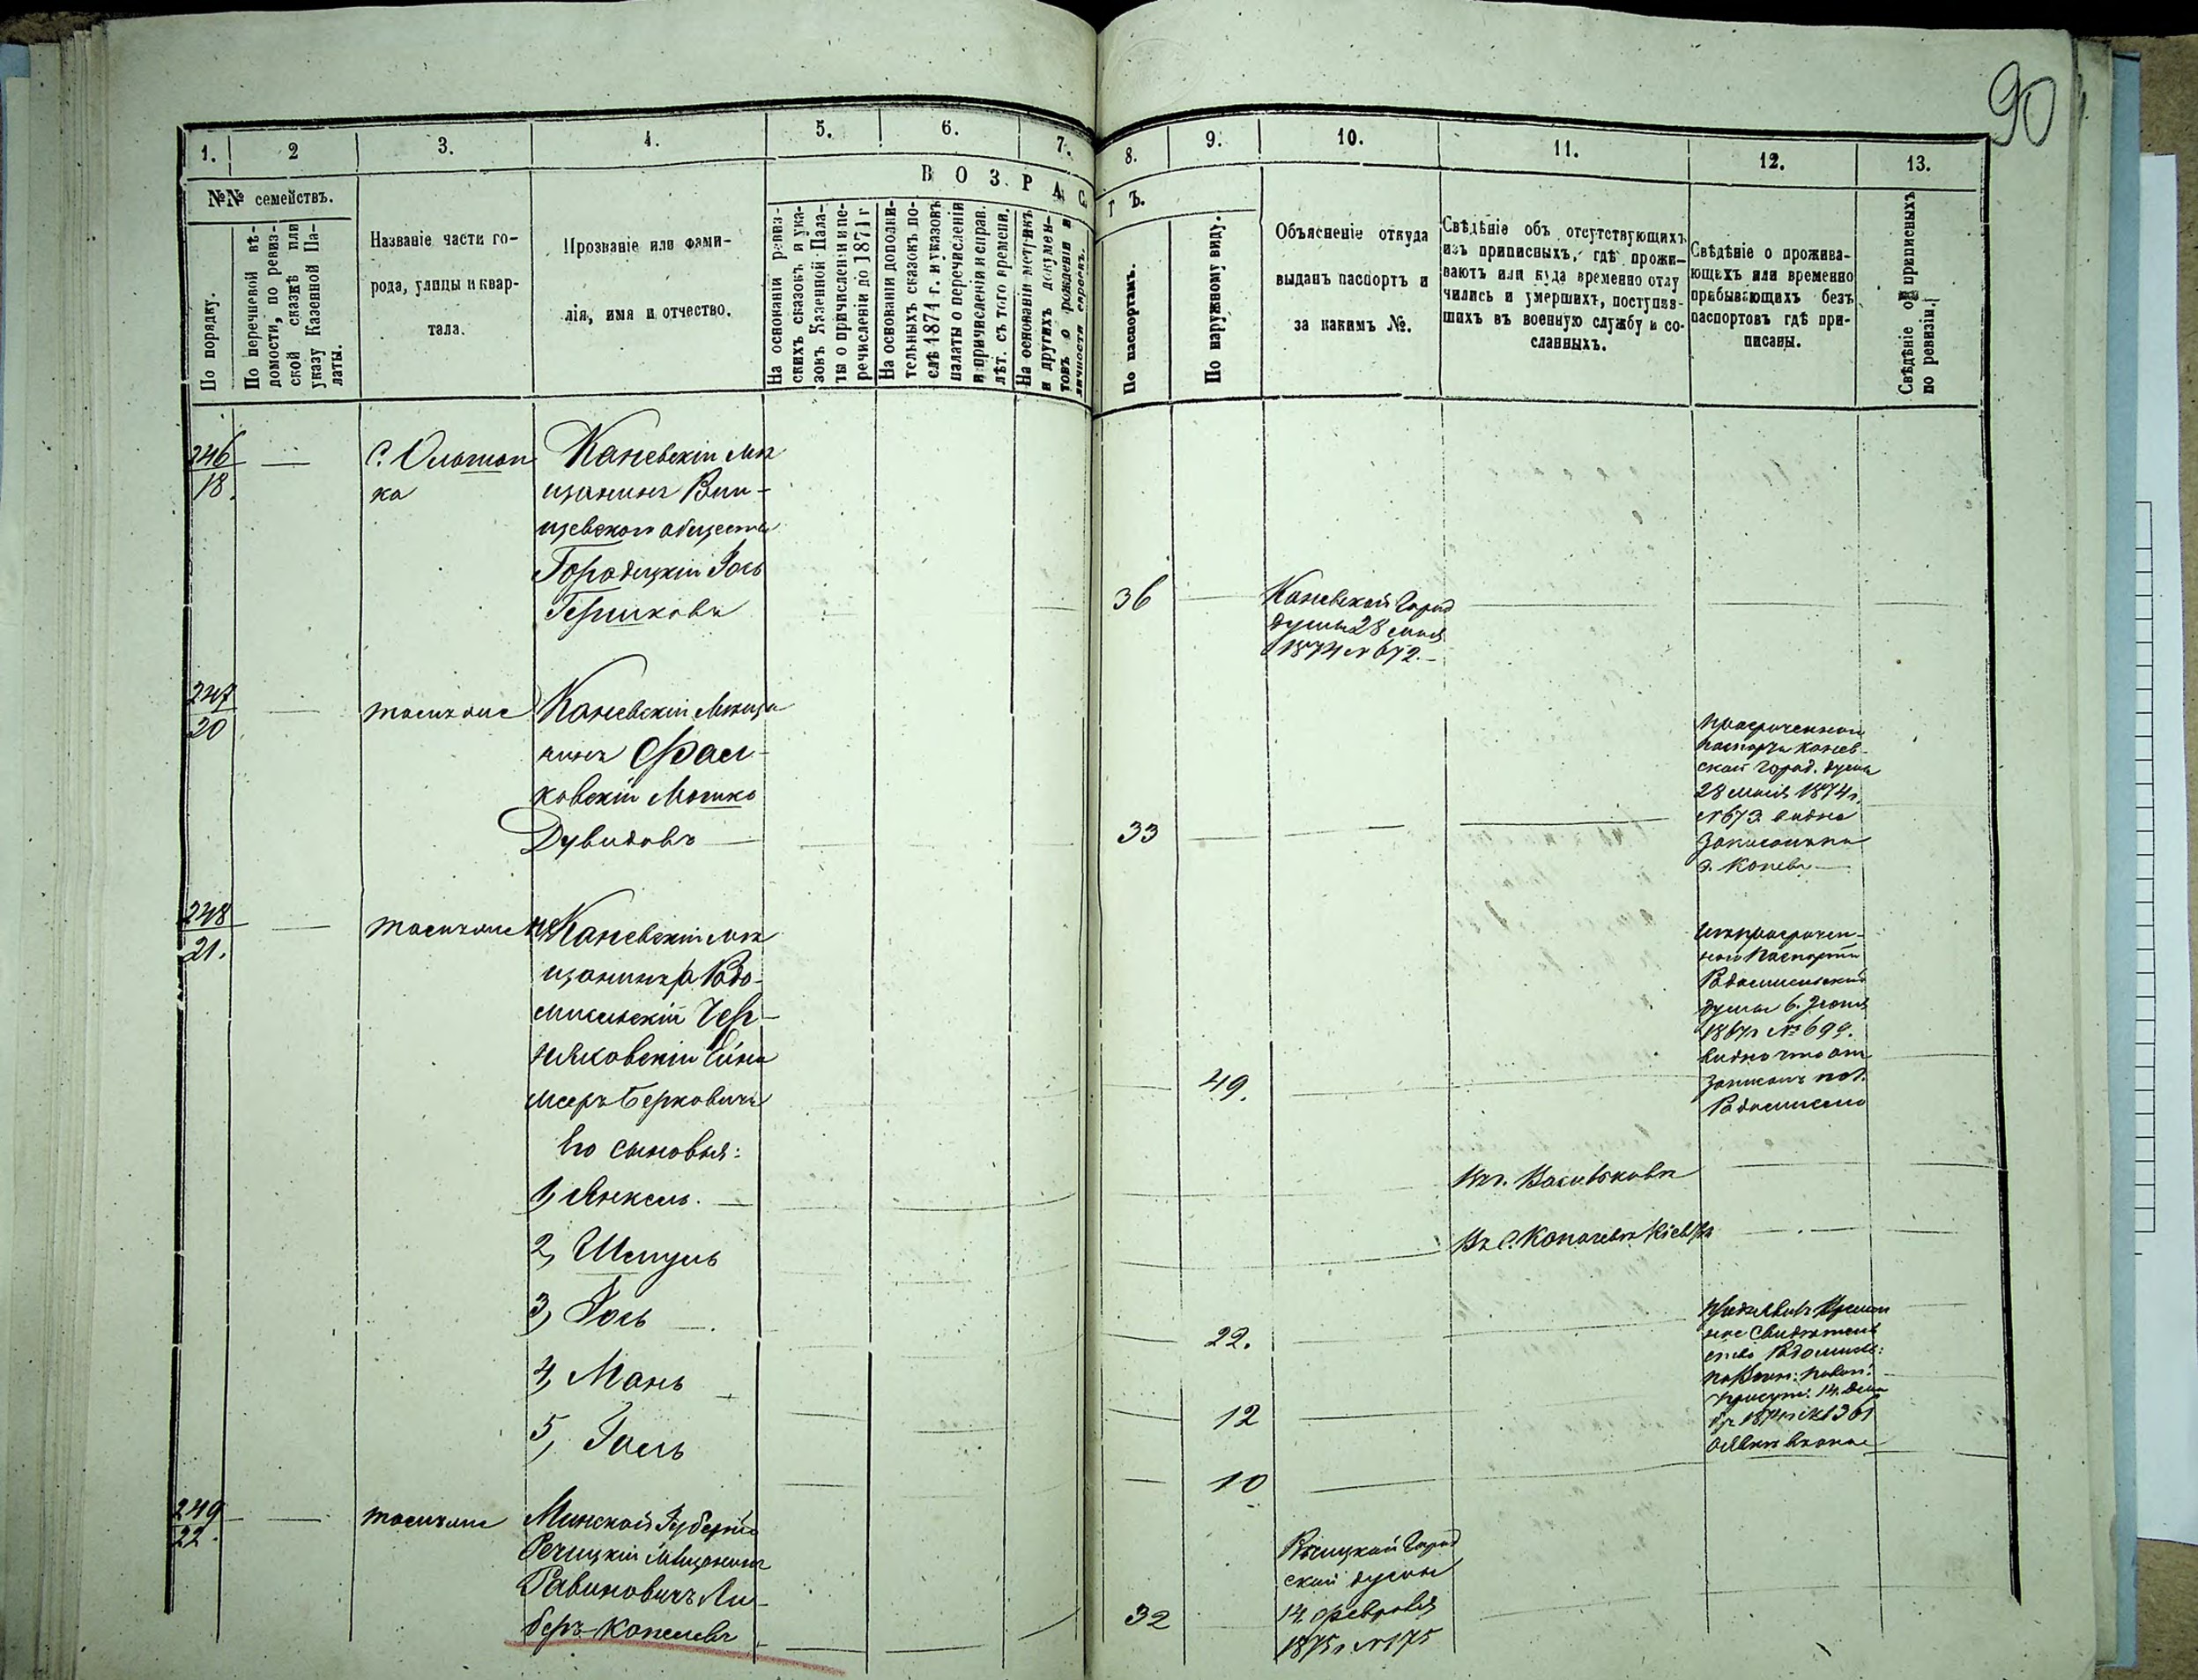 90
1. 2 3. 4. 5. 6. 7. 8. 9. 10. 11. 12. 13.
№№ семействъ.
По порядку.
По перечневой вѣ-
домости, по ревиз-
ской сказкѣ или
указу Казенной Па-
латы.
Названіе части го-
рода, улицы и квар-
тала.
Прозваніе или фами-
лія, имя и отчество.
В О З Р А С
Т Ъ.
На основаніи ревиз-
скихъ сказокъ и ука-
зовъ Казенной Пала-
ты о причисленіи и пе-
речисленіи до 1871 г
На основаніи дополни-
тельныхъ сказокъ по-
слѣ 1871 г. и указовъ
палаты о перечисленіи
и причисленіи и исправ.
лѣт. съ того времени.
На основаніи метрикъ
и другихъ докумен-
товъ о рожденіи и
личности евреевъ.
По паспортамъ.
По наружному виду.
Объясненіе откуда
выданъ паспортъ и
за какимъ №.
Свѣдѣніе объ отсутствующихъ
изъ приписныхъ, гдѣ прожи-
ваютъ или куда временно отлу
чились и умершихъ, поступив-
шихъ въ военную службу и со-
сланныхъ.
Свѣдѣніе о прожива-
ющихъ или временно
пребывающихъ безъ
паспортовъ гдѣ при-
писаны.
Свѣдѣніе о приписныхъ
по ревизіи.
246
18.
С. Ольшан
ка
Каневскій мѣ
щанинъ
общества
Городецкій Іось
Гершковъ
36
Каневской Город
думы 28 мая
1874 № 672.
247
20
тамъ же
Каневскій мѣща
нинъ Фал-
ковскій Мошко
Дувидовъ
33
просроченнаго
паспорта Канев-
ской Город. думы
28 мая 1874 г.
№ 673 видно
записанъ
г. Канева
248
21.
тамъ же
Каневскій мѣ
щанинъ Радо-
мысльскій Чер-
няховскій
Берковичъ
49.
просрочен-
наго паспорта
Радомысльской
думы 6
№ 699.
видно что онъ
записанъ по г.
Радомыслю
Его сыновья:
1, Янкель.
Въ г. Васильковѣ
2, Шмуль
Въ С. Кіев
3, Іось
22.
4, Мань
12
5, Іоель
10
временное
свидѣтель
ство Радомысль:
14 Дека
249
22.
тамъ же
Минской Губерніи
Речицкій мѣщанинъ
Рабиновичъ Ли-
беръ Копелевъ
32
Речицкой Город
ской думы
14 февраля
1875 г. № 175